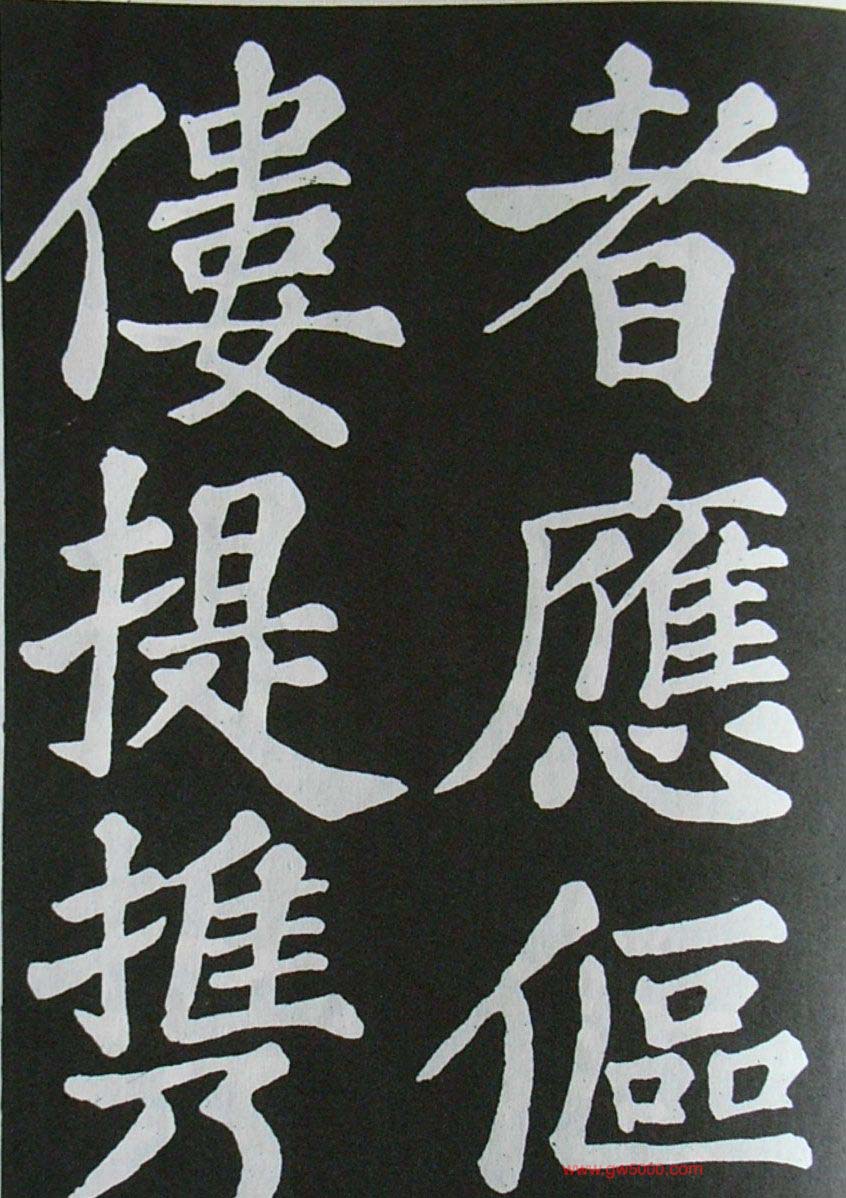 者應傴
僂提攜
www.gw5000.com